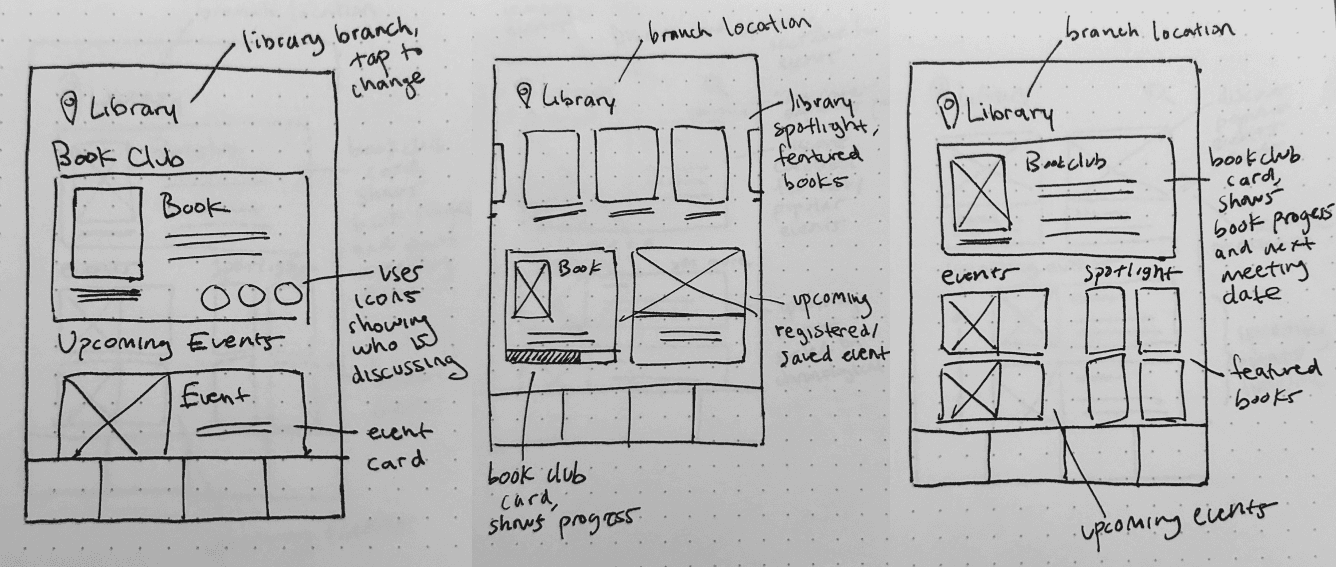 library branch,
tap to
change
Library
Book Club
Book
user
icons
showing
who is
discussing
Upcoming Events
Event
event
card
branch location
Library
library
spotlight,
featured
books
Book
upcoming
registered/
saved event
book club
card,
shows progress
branch location
Library
Bookclub
bookclub
card,
shows
book progess
and next
meeting
date
events
spotlight
featured
books
upcoming events